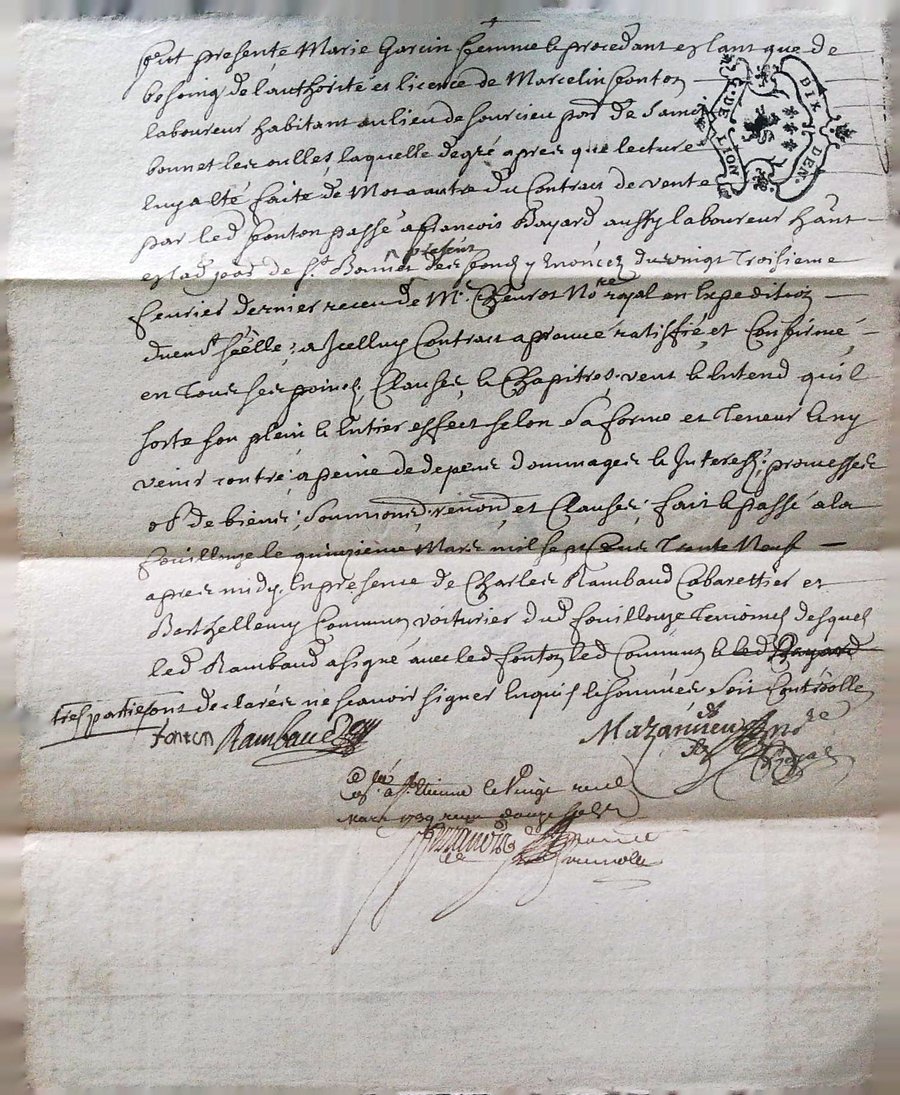 fut presente Marie Garcin femme le procedant estant que de
besoing de l'authorité et licence de Marcelin fonton
laboureur habitant au lieu de sourcieu par de Saint
bonnet les oulles, laquelle de gré apres que lecture
luy a esté faite de Mot a autre du Contrat de vente
par led fonton passé a francois Bayard aussy laboureur hānt
en lad de St Bonnet des fonds y enoncés du vingt Troisieme
present
fevrier dernier receu de Me Nore royal en Expedition
duemt scellé, a Icelluy Contrat aprouvé ratiffié et Confirmé
en Tous ses points, Clauses, & Chapitres, veut & entend qu'il
sorte son plein & entier effect selon sa forme et Teneur & ny
venir contre, a peine de depens dommages & Interests, promesses
ob de biens, soumions, renond, et Clauses, fait & passé a la
fouillouze le quinzieme Mars mil sept cent Trente Neuf
apres midy, En presence de Charles Rambaud Cabarettier et
Berthellemy Commun voiturier dud fouillouze Temoins desquels
led Rambaud a signé avec led fonton led Commun & led Bayard
tres partie ont declarés ne scavoir signer Enquis & sommés soit Controolle
fonton Rambaud
Mazanieu nore
Royal
a St Etienne le Vingt
Mars 1739 receu douze sols
G. DE LION
DIX DEN.